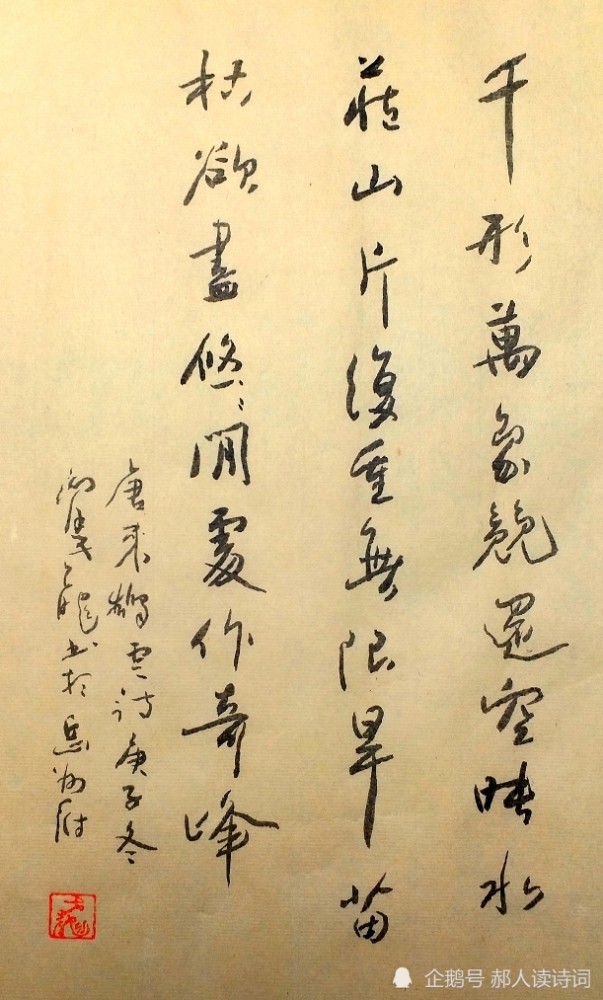 千形萬象競還空映水
藏山片復重無限旱苗
枯欲盡悠〻閒處作奇峰
唐來鵠雲詩庚子冬
书於岳州府
企鹅号 郝人读诗词